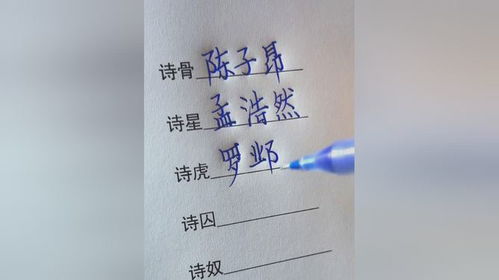 诗骨陈子昂
诗星孟浩然
诗虎罗邺
诗囚
诗奴